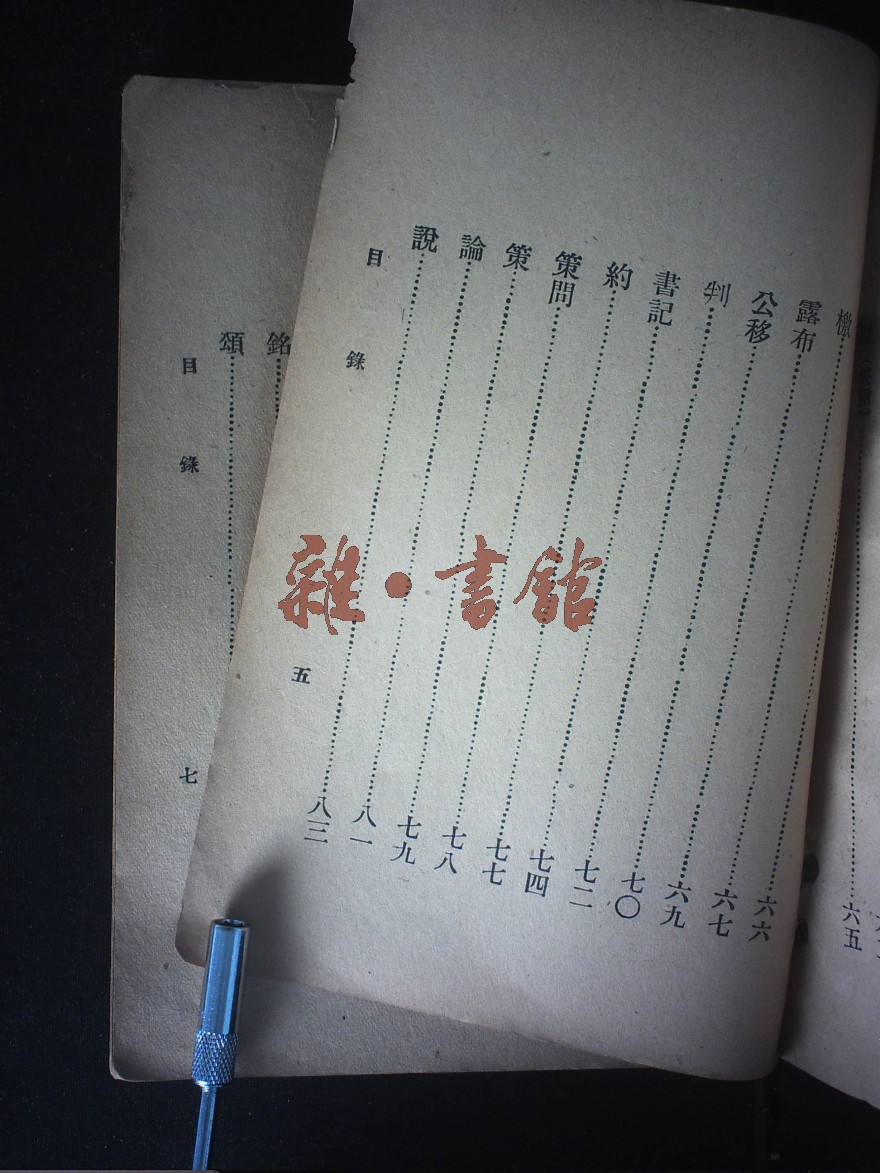 六五
六六
檄……六七
露布……六九
公移……七〇
判……七二
書記……七四
約……七七
策問……七八
策……七九
論……八一
說……八三
目錄 五
銘
頌
目錄 七
雜·書館